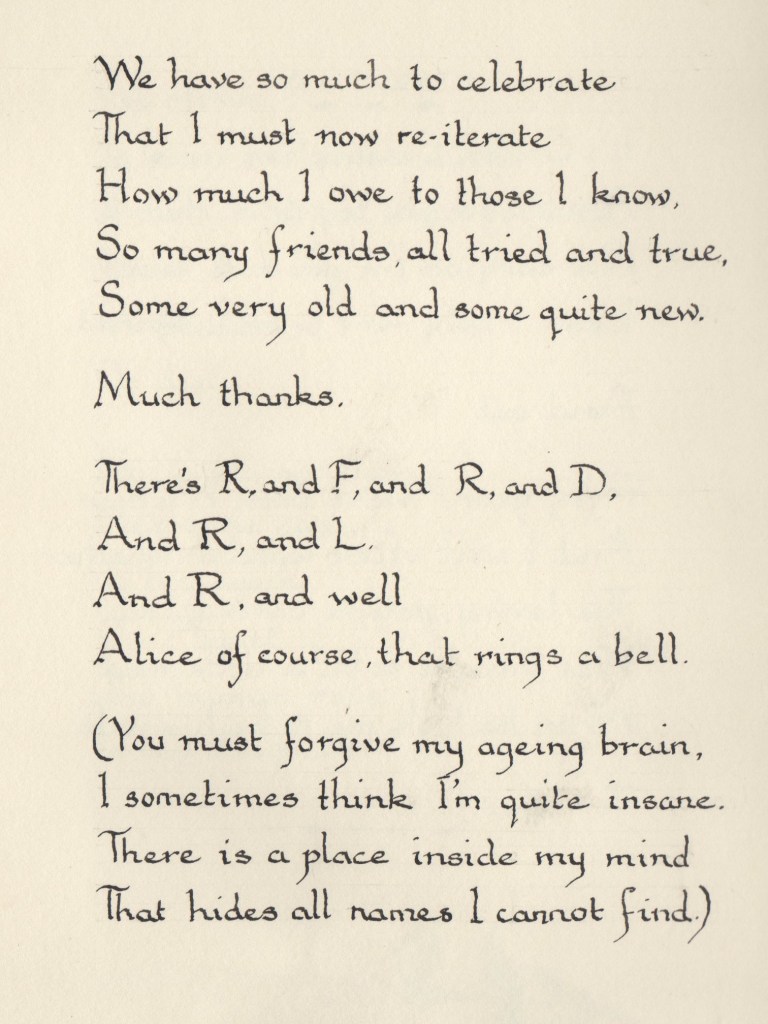 We have so much to celebrate
That I must now re-iterate
How much I owe to those I know,
So many friends, all tried and true,
Some very old and some quite new.
Much thanks.
There's R, and F, and R, and D,
And R, and L.
And R, and well
Alice of course, that rings a bell.
(You must forgive my ageing brain,
I sometimes think I'm quite insane.
There is a place inside my mind
That hides all names I cannot find.)